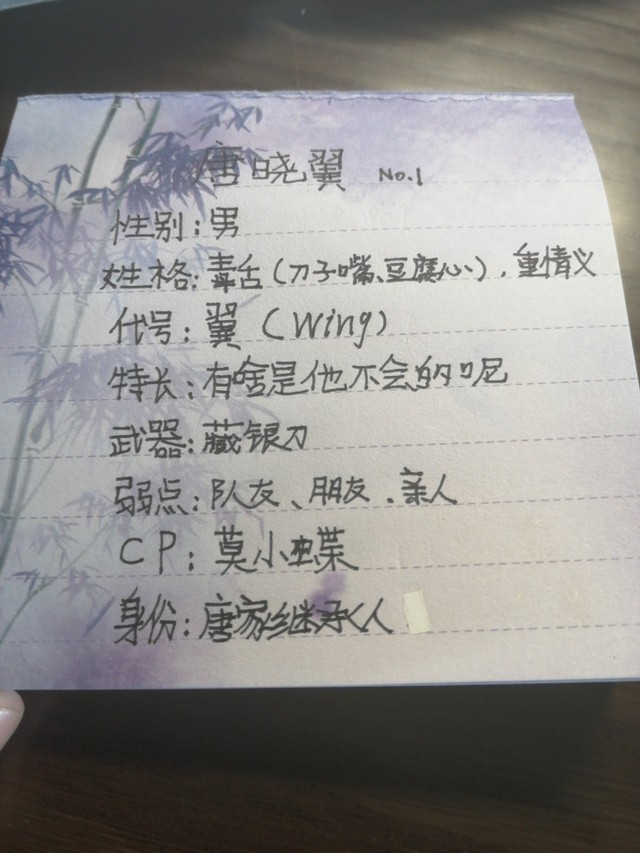 唐晓翼 No.1
性别:男
性格:毒舌(刀子嘴、豆腐心)、重情义
代号:翼(Wing)
特长:有啥是他不会的呢
武器:藏银刀
弱点:队友、朋友、亲人
CP:莫小蝶
身份:唐家继承人